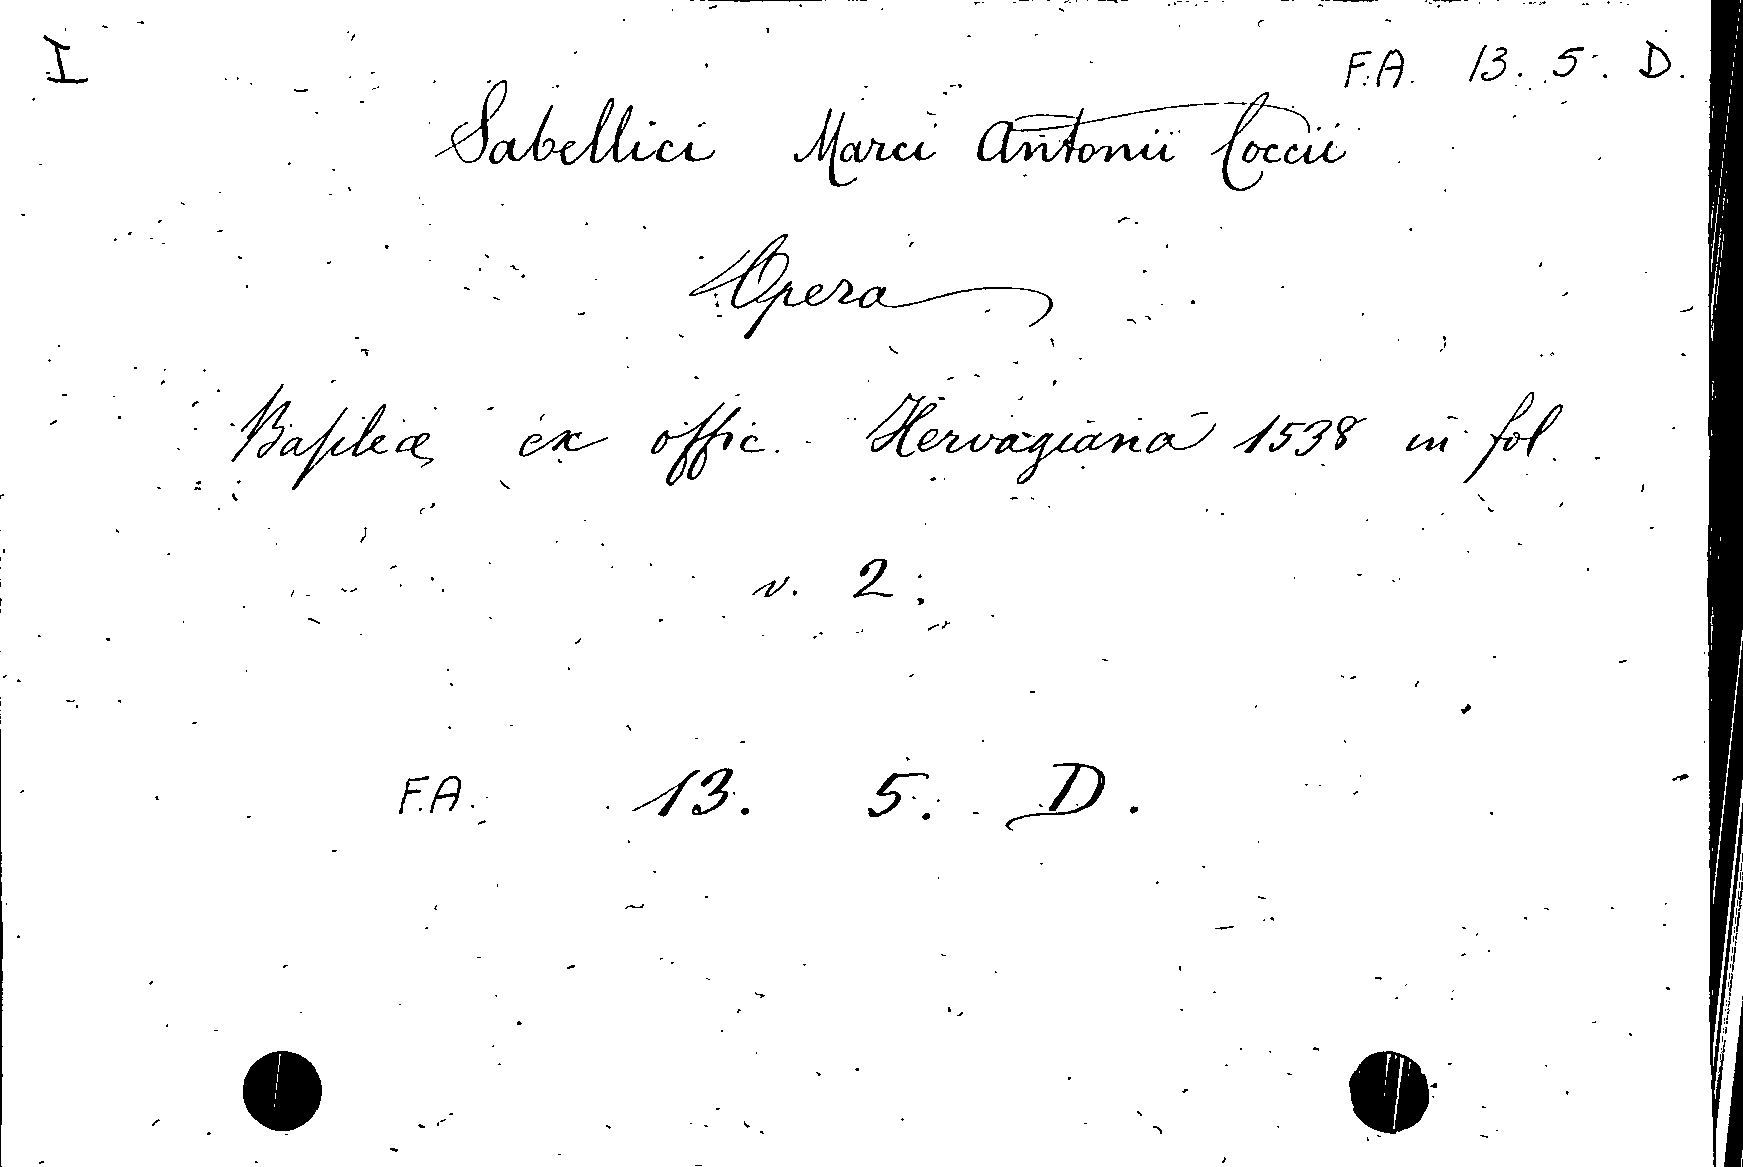 I
F.A. 13. 5. D.
Sabellici Marci Antonii Coccii
Opera
Basileæ ex offic. Hervagiana 1538 in fol
v. 2.
F.A. 13. 5. D.